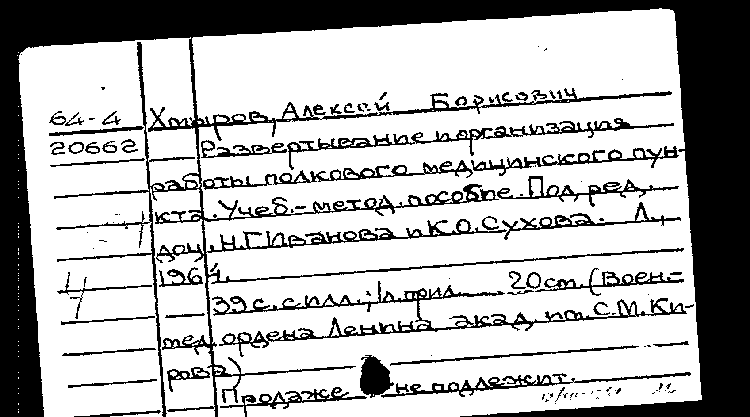 64-4 Хмыров, Алексей Борисович
20662 Развертывание и организация
работы полкового медицинского пун-
кта. Учеб.-метод. пособие. Под ред.
доц. Н.Г. Иванова и К.О. Сухова. Л.,
1964.
39 с. с илл.; 1 л. прил. 20 см. (Воен.-
мед. ордена Ленина акад. им. С.М. Ки-
рова)
Продаже не подлежит.